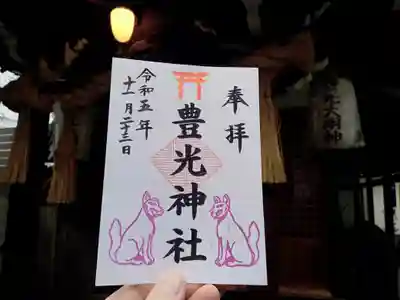 奉拝
豊光神社
令和五年
十一月二十三日